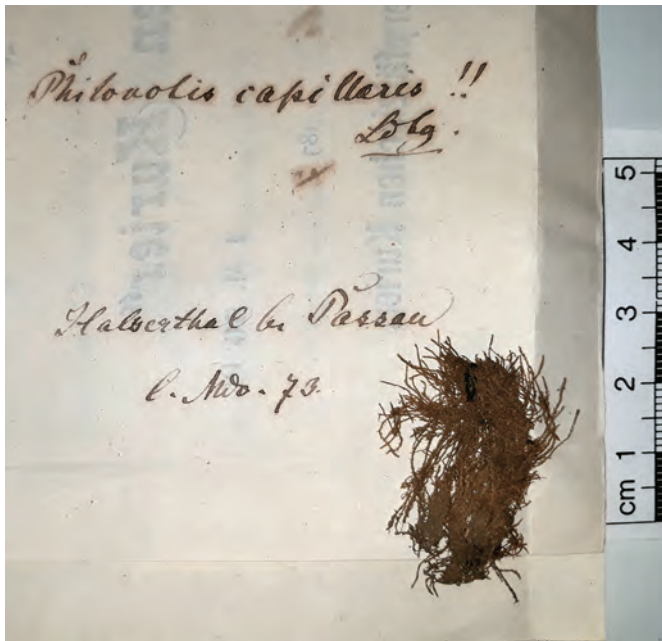 Philonotis capillaris !!
Ldbg.
Halserthal bei Passau
l. Mdo. 73.
5
4
3
2
1
cm